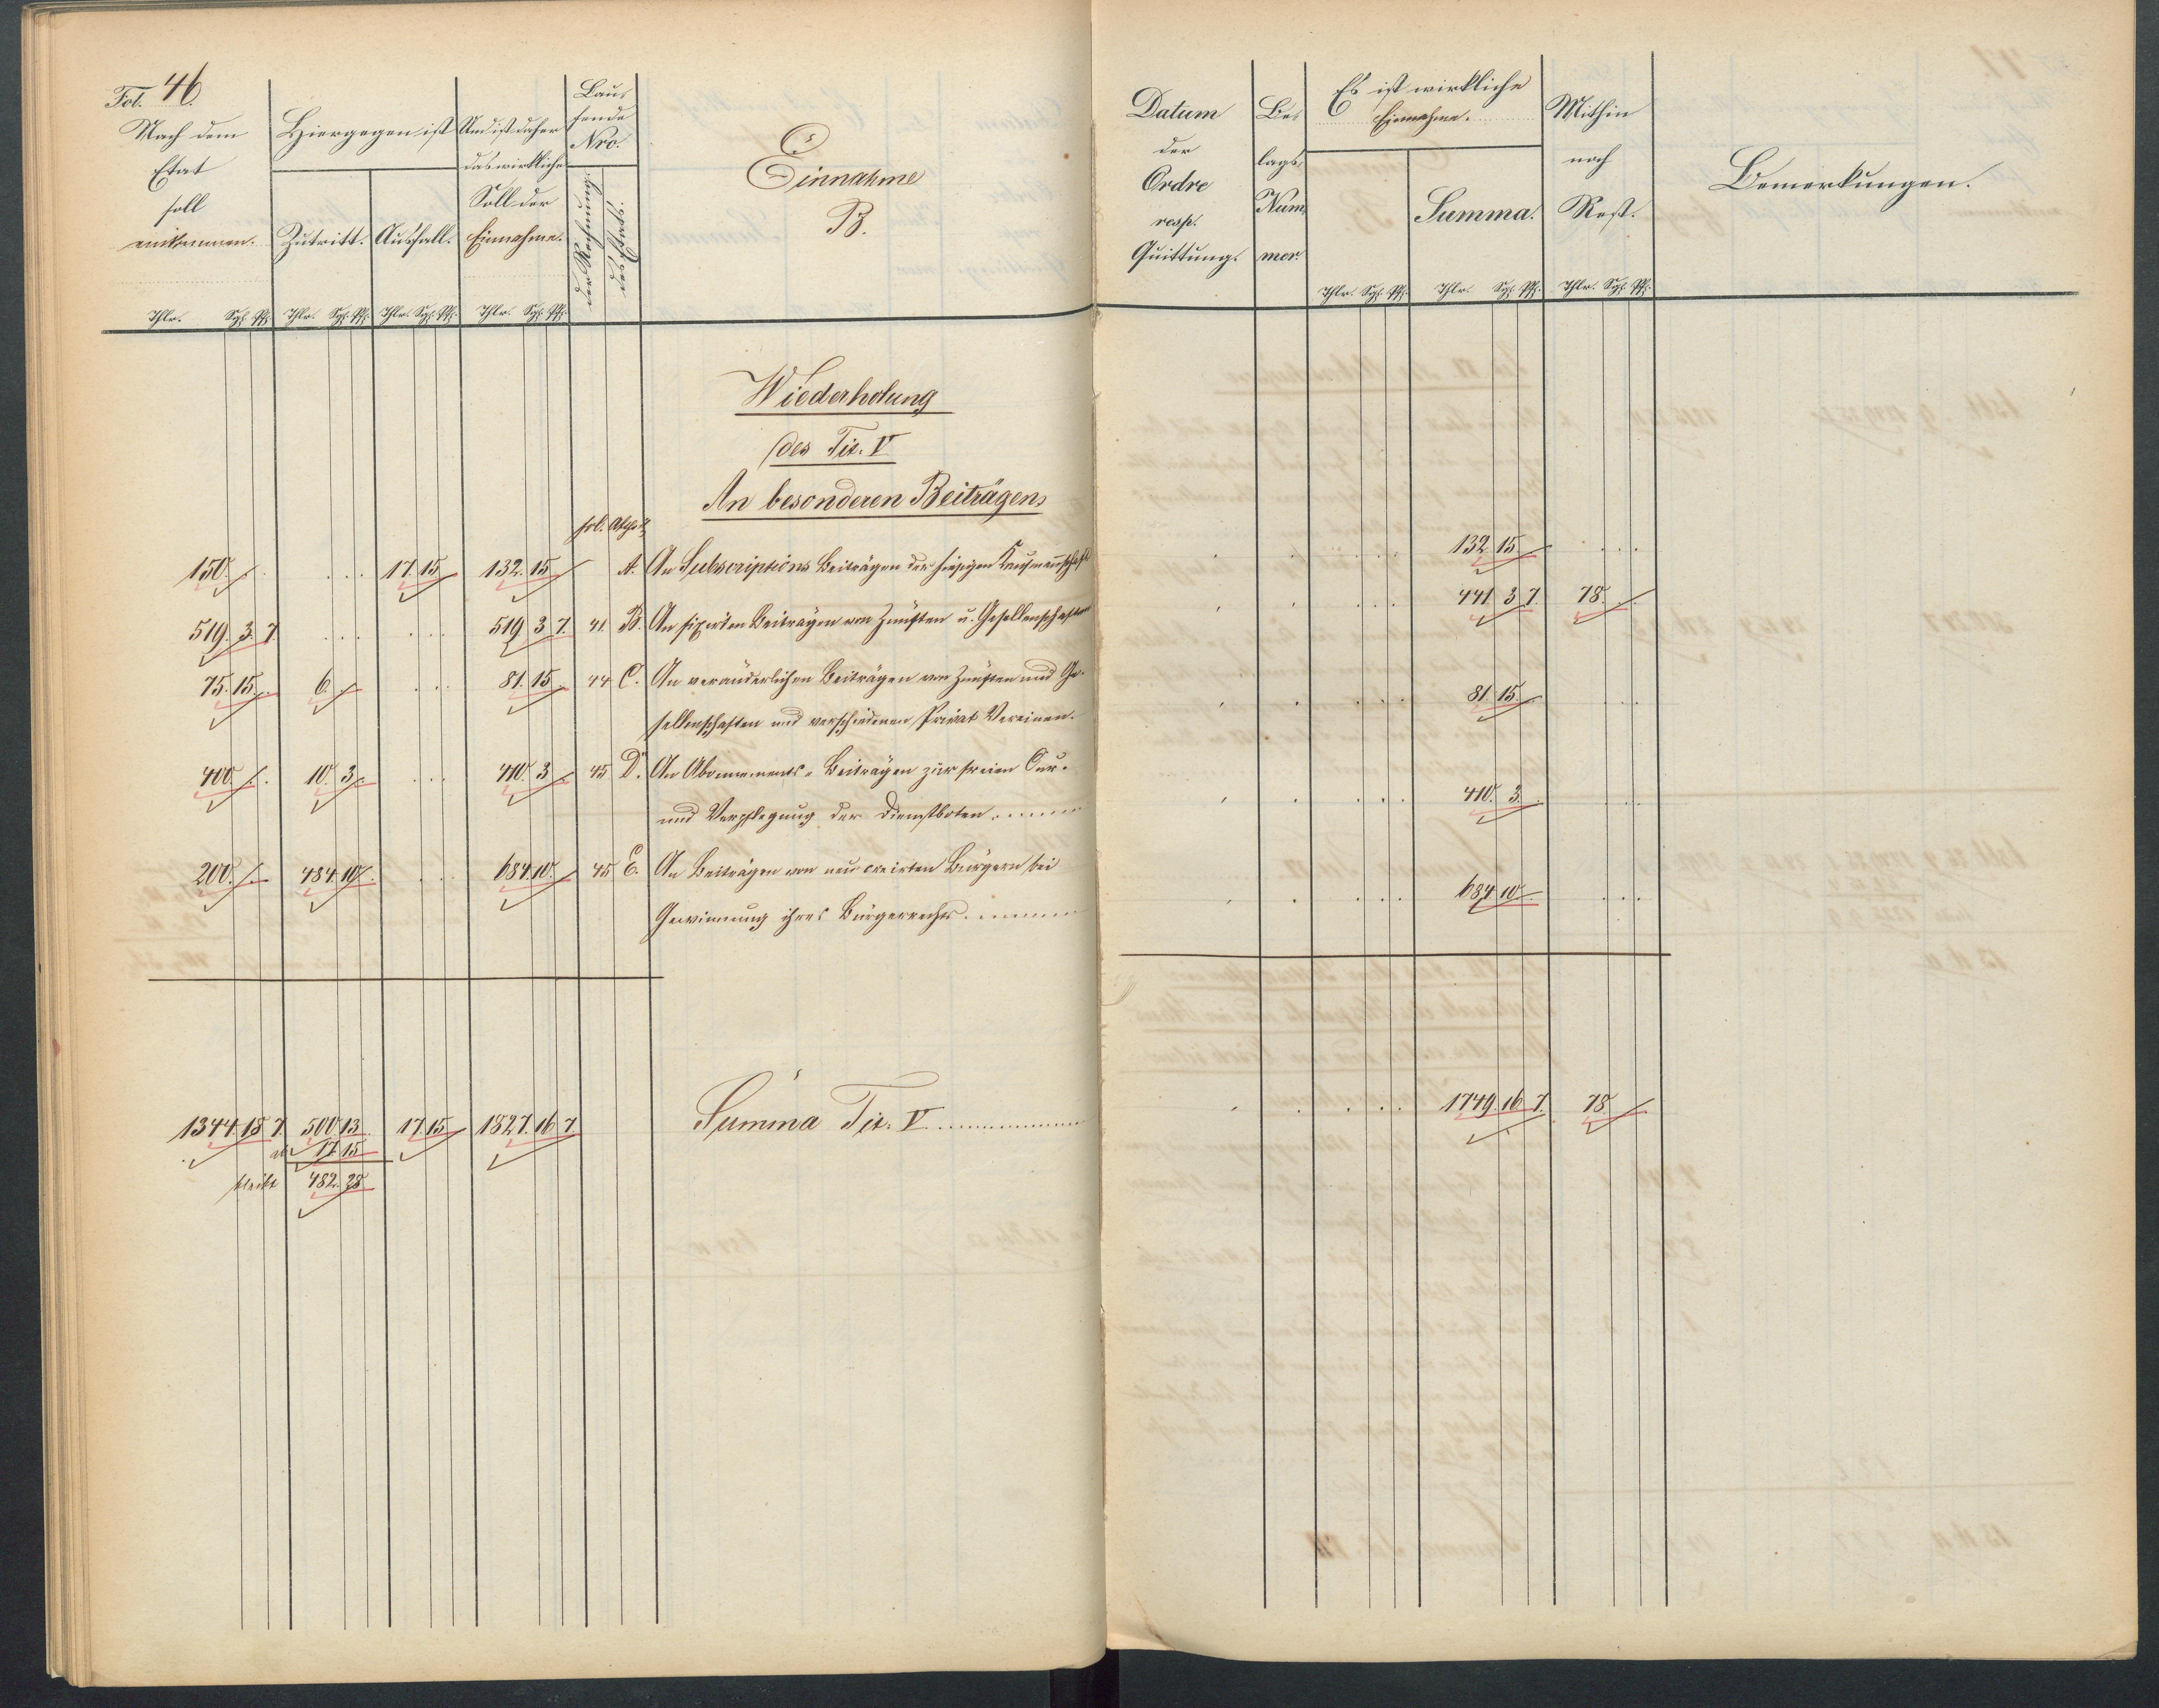 Fol. 46.
Nach dem
Etat
soll
einkommen.
Hiergegen ist
Zutritt. Ausfall.
Und ist daher
das wirkliche
Soll der
Einnahme.
Lau-
fende
Nro.
der Rechnung.
des Etats.
Einnahme
B.
Thlr. Sgr. Pf. Thlr. Sgr. Pf. Thlr. Sgr. Pf. Thlr. Sgr. Pf.
Wiederholung
des Tit. V
An besonderen Beiträgen
fol. Absch.
150. 17. 15 132. 15 A. An Subscriptions Beiträgen der hiesigen Kaufmannschaft
519. 3. 7 519 3 7. 41. B. An fixirten Beiträgen von Zünften u. Gesellenschaften
75. 15. 6. 81. 15 44 C. An veränderlichen Beiträgen von Zünften und Ge-
sellenschaften und verschiedenen Privat Vereinen.
400. 10. 3. 410. 3 45 D. An Abonnements-Beiträgen zur freien Cur-
und Verpflegung der Dienstboten
200. 484. 10. 684. 10. 45 E. An Beiträgen von neu creirten Bürgern bei
Gewinnung ihres Bürgerrechts
1344. 18 7. 500 13. 17. 15 1827. 16 7 Summa Tit. V
ab 17. 15
bleibt 482. 28.
Datum
der
Ordre
resp.
Quittung.
Be-
lags
Num-
mer.
Es ist wirkliche
Einnahme.
Summa.
Mithin
noch
Rest.
Bemerkungen.
Thlr. Sgr. Pf. Thlr. Sgr. Pf. Thlr. Sgr. Pf.
132. 15.
441 3 7. 78.
81. 15.
410. 3.
684. 10.
1749. 16 7. 78